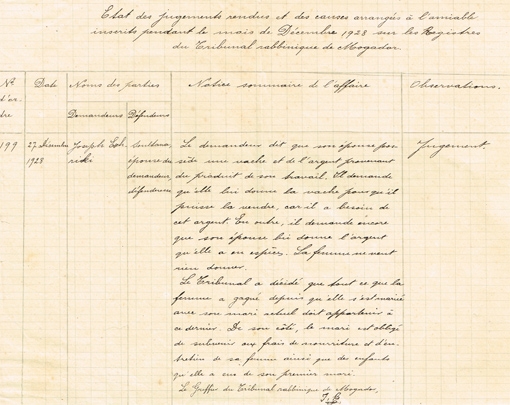 Etat des jugements rendus et des causes arrangés à l'amiable
inscrits pendant le mois de Décembre 1928 sur les Registres
du Tribunal rabbinique de Mogador.
No d'or dre
Date
Noms des parties
Notice sommaire de l'affaire
Observations.
Demandeurs
Défendeurs
199
27 Décembre
1928
Joseph
Sultana,
épouse du
demandeur,
défenderesse
Le demandeur dit que son épouse pos
sède une vache et de l'argent provenant
du produit de son travail. Il demande
qu'elle lui donne la vache pour qu'il
puisse la vendre, car il a besoin de
cet argent. En outre, il demande encore
que son épouse lui donne l'argent
qu'elle a en espèces. La femme ne veut
rien donner.
Le Tribunal a décidé que tout ce que la
femme a gagné depuis qu'elle s'est mariée
avec son mari actuel doit appartenir à
ce dernier. De son côté, le mari est obligé
de subvenir aux frais de nourriture et d'en
tretien de sa femme ainsi que des enfants
qu'elle a eus de son premier mari.
Le Greffier du Tribunal rabbinique de Mogador,
Jugement.